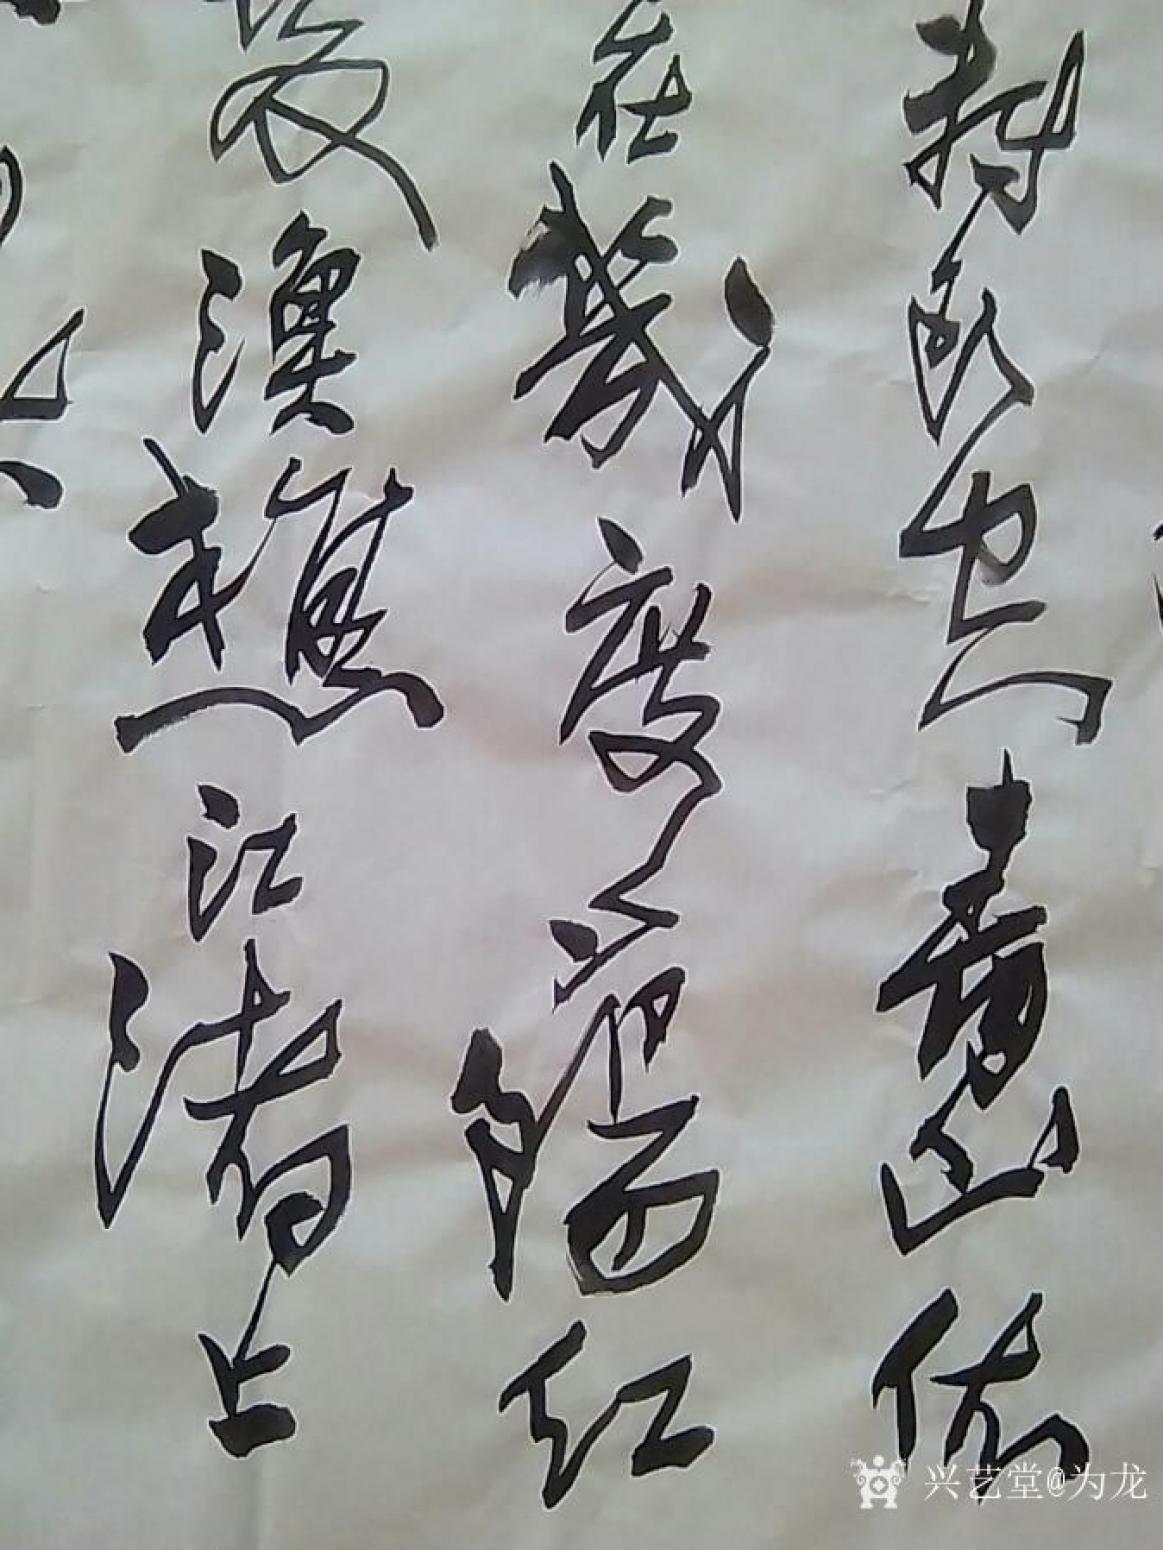 转头空青山依
在几度夕阳红
发渔樵江渚上
兴艺堂@为龙